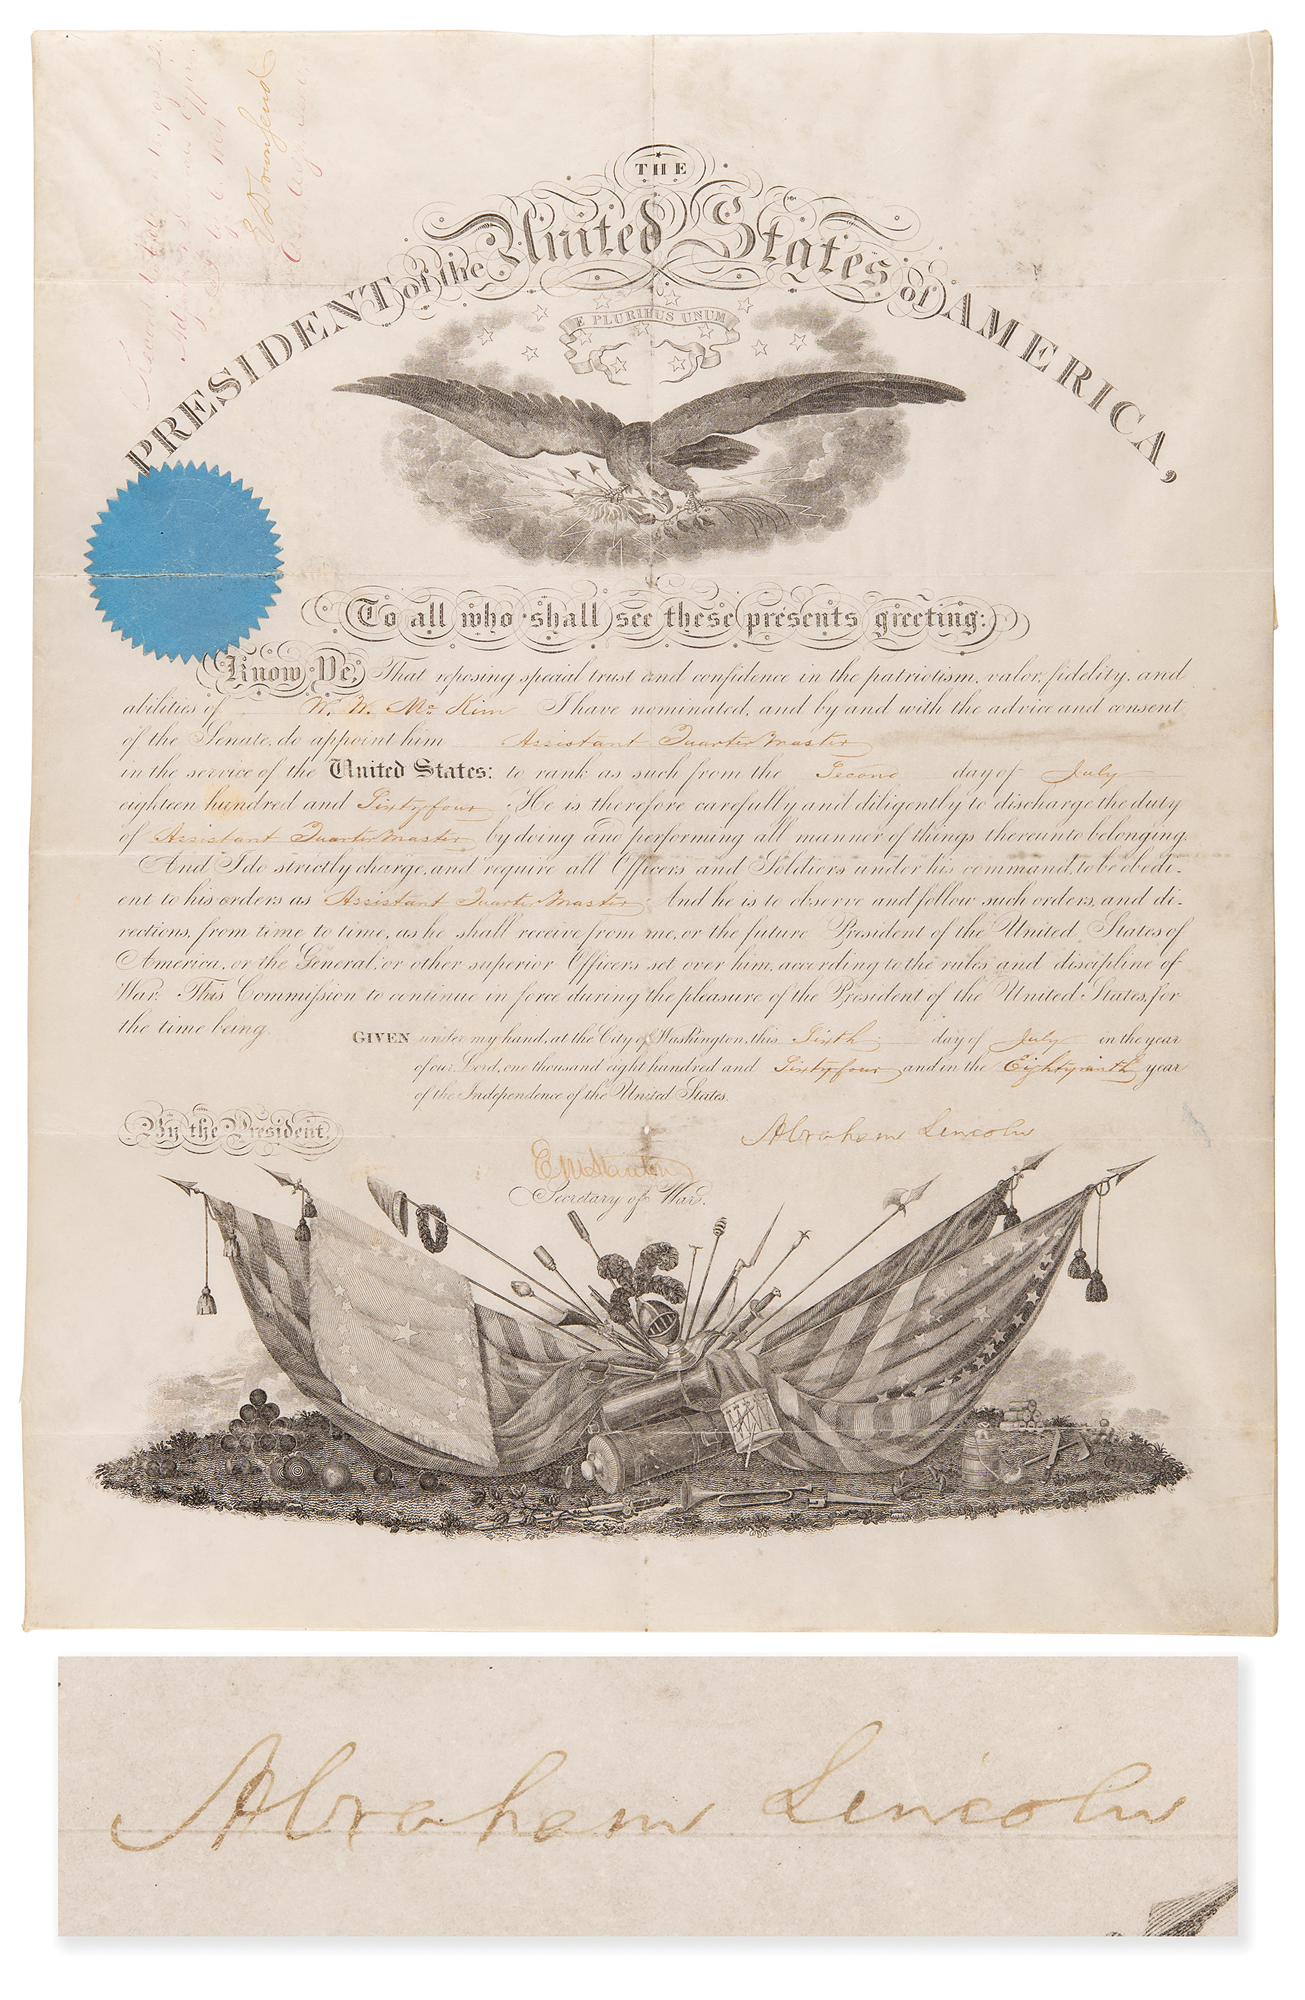 THE
United States
PRESIDENT of the of AMERICA,
E PLURIBUS UNUM
To all who shall see these presents greeting:
Know Ye, That reposing special trust and confidence in the patriotism, valor, fidelity, and
abilities of W. W. Mc Kim I have nominated, and by and with the advice and consent
of the Senate, do appoint him Assistant Quarter Master
in the service of the United States: to rank as such from the Second day of July
eighteen hundred and Sixty four . He is therefore carefully and diligently to discharge the duty
of Assistant Quarter Master by doing and performing all manner of things thereunto belonging.
And I do strictly charge, and require all Officers and Soldiers under his command, to be obedi-
ent to his orders as Assistant Quarter Master. And he is to observe and follow such orders, and di-
rections, from time to time, as he shall receive from me, or the future President of the United States of
America, or the General, or other superior Officers set over him, according to the rules and discipline of
War. This Commission to continue in force during the pleasure of the President of the United States, for
the time being.
GIVEN under my hand, at the City of Washington, this Sixth day of July in the year
of our Lord, one thousand eight hundred and Sixty four and in the Eighty ninth year
of the Independence of the United States.
By the President,
Abraham Lincoln
E M Stanton
Secretary of War.
E D Townsend
Abraham Lincoln